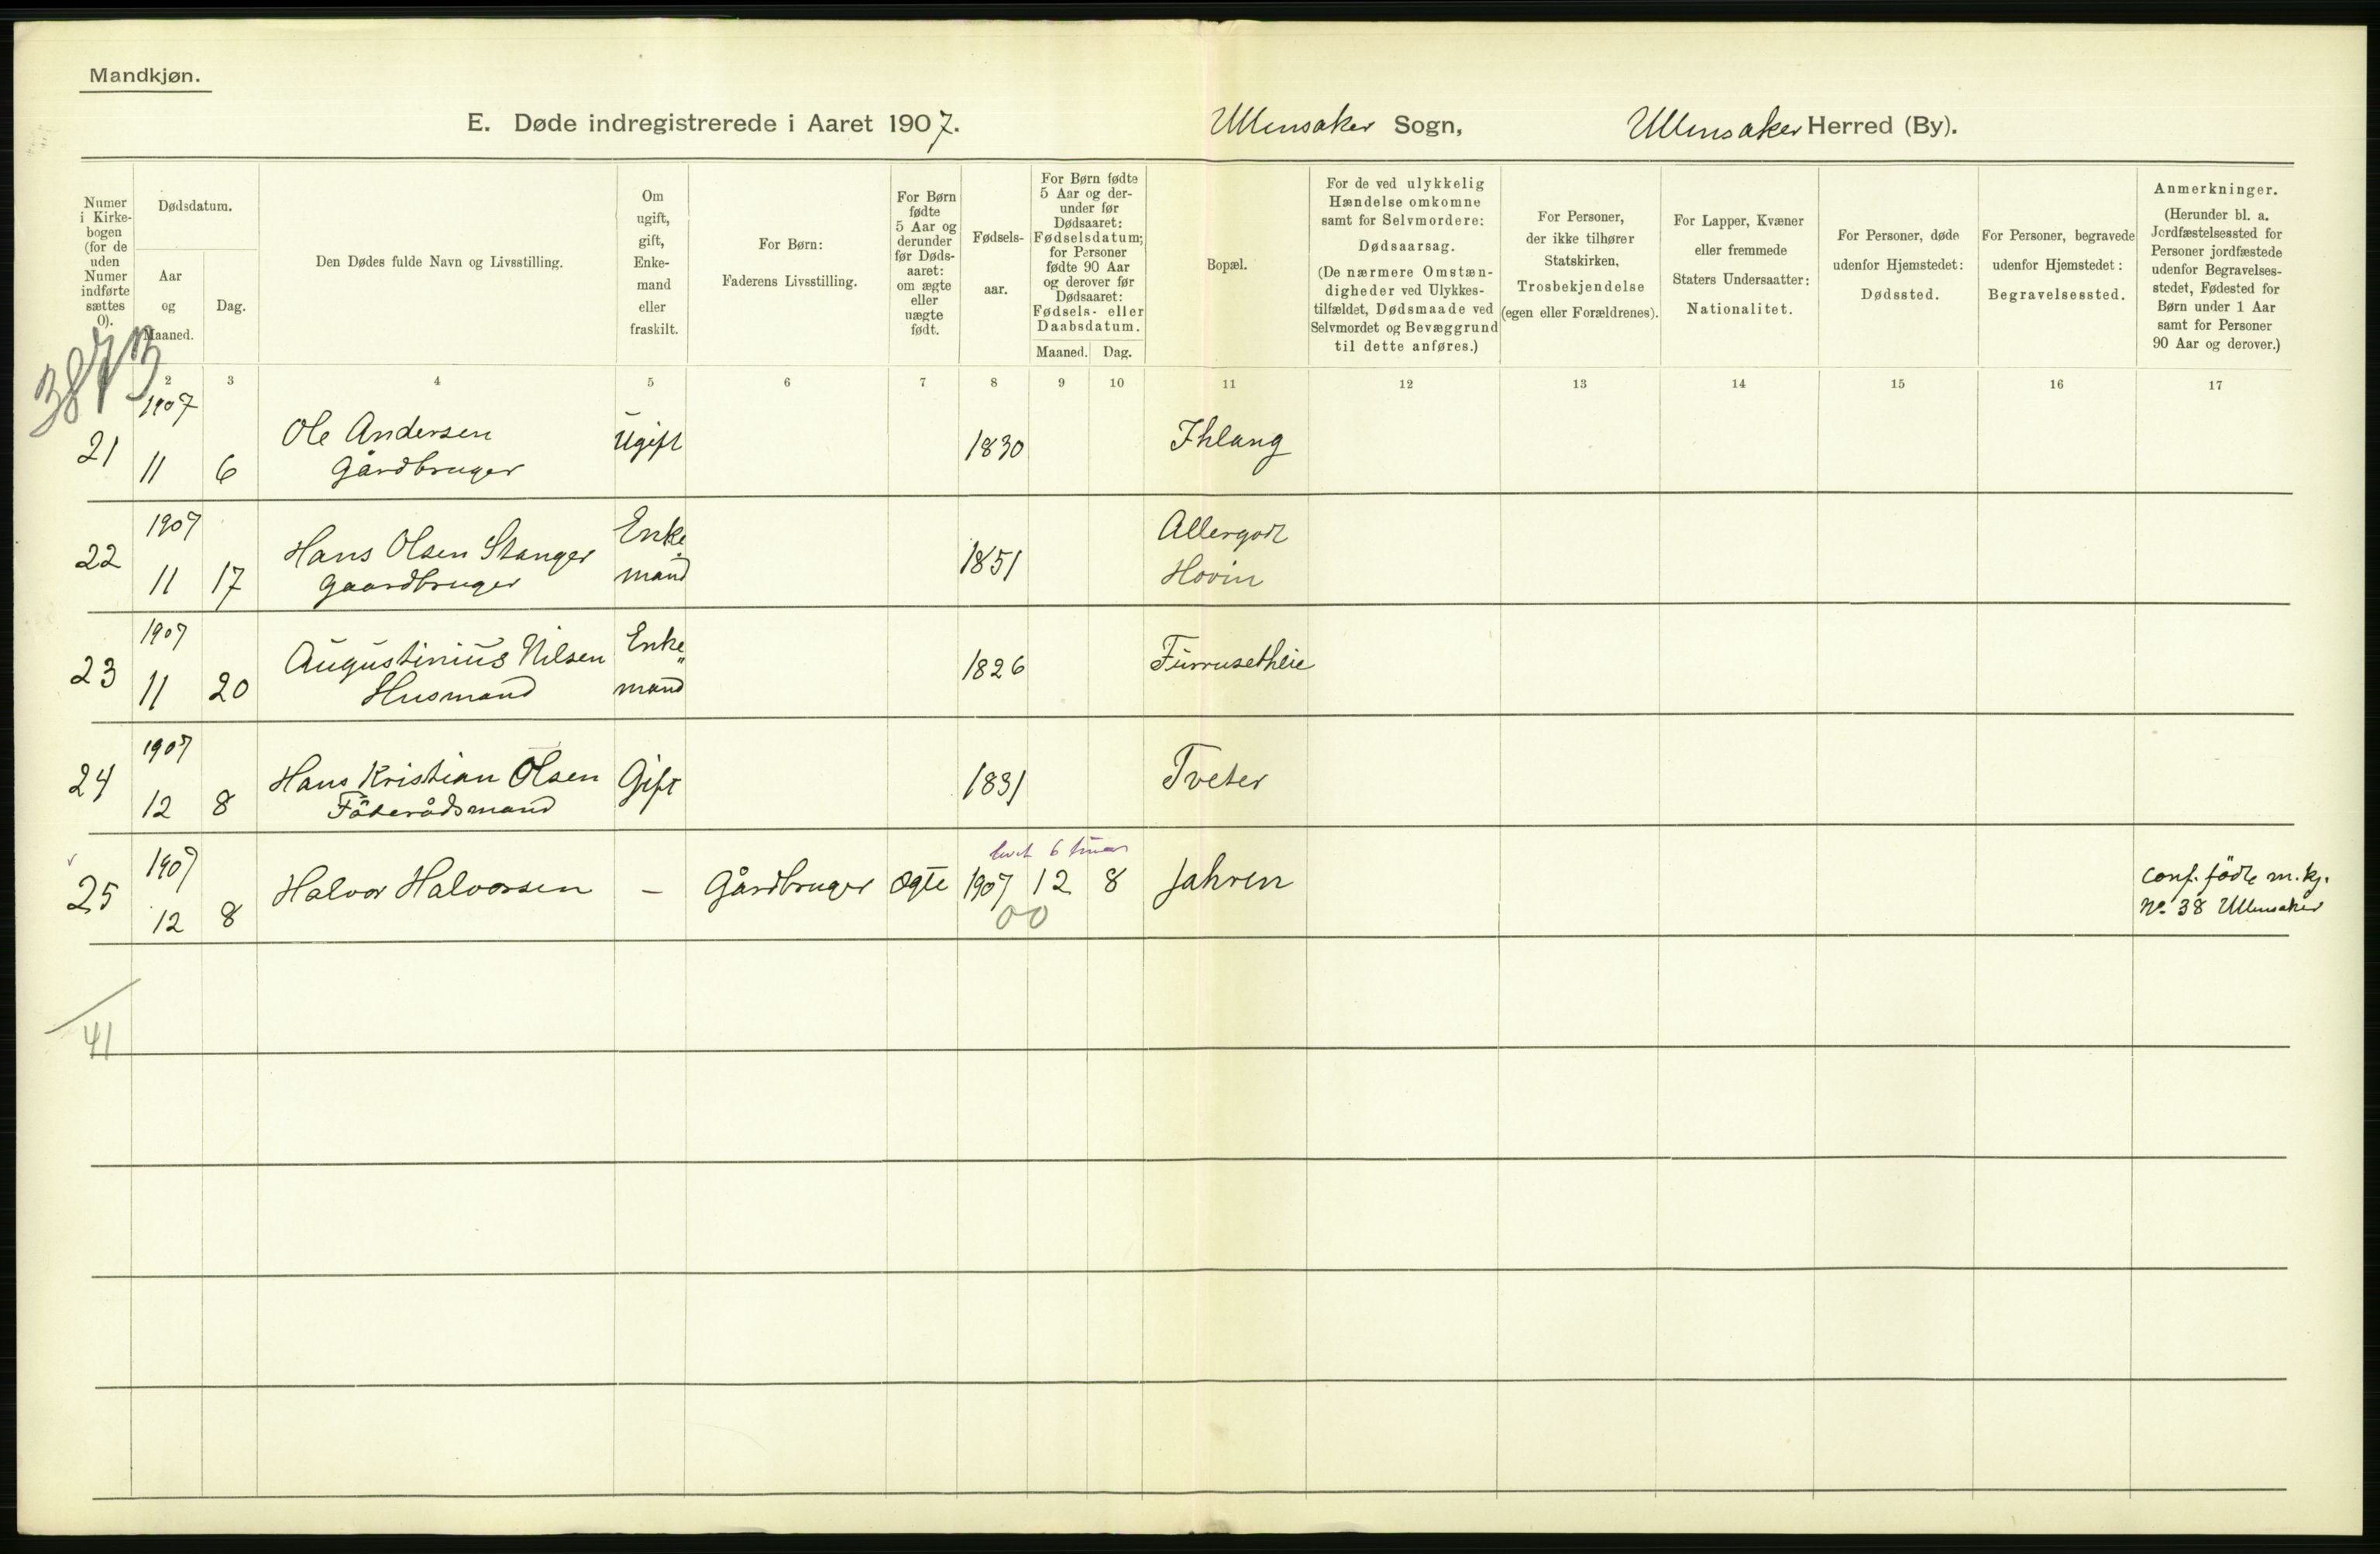 Mandkjøn.
E. Døde indregistrerede i Aaret 1907. Ullensaker Sogn, Ullensaker Herred (By).
Numer
i Kirke-
bogen
(for de
uden
Numer
indførte
sættes
0).
Dødsdatum.
Aar
og
Maaned.
Dag.
Den Dødes fulde Navn og Livsstilling.
Om
ugift,
gift,
Enke-
mand
eller
fraskilt.
For Børn:
Faderens Livsstilling.
For Børn
fødte
5 Aar og
derunder
før Døds-
aaret:
om ægte
eller
uægte
født.
Fødsels-
aar.
For Børn fødte
5 Aar og der-
under før
Dødsaaret:
Fødselsdatum;
for Personer
fødte 90 Aar
og derover før
Dødsaaret:
Fødsels- eller
Daabsdatum.
Maaned. Dag.
Bopæl.
For de ved ulykkelig
Hændelse omkomne
samt for Selvmordere:
Dødsaarsag.
(De nærmere Omstæn-
digheder ved Ulykkes-
tilfældet, Dødsmaade ved
Selvmordet og Bevæggrund
til dette anføres.)
For Personer,
der ikke tilhører
Statskirken,
Trosbekjendelse
(egen eller Forældrenes).
For Lapper, Kvæner
eller fremmede
Staters Undersaatter:
Nationalitet.
For Personer, døde
udenfor Hjemstedet:
Dødssted.
For Personer, begravede
udenfor Hjemstedet:
Begravelsessted.
Anmerkninger.
(Herunder bl. a.
Jordfæstelsessted for
Personer jordfæstede
udenfor Begravelses-
stedet, Fødested for
Børn under 1 Aar
samt for Personer
90 Aar og derover.)
3873
2 3 4 5 6 7 8 9 10 11 12 13 14 15 16 17
1907
21 11 6 Ole Andersen Ugift 1830 Ihlang
Gårdbruger
1907
22 11 17 Hans Olsen Stanger Enke 1851 Allergodt
Gaardbruger mand Hovin
1907
23 11 20 Augustinius Nilsen Enke 1826 Furrusethlie
Husmand mand
1907
24 12 8 Hans Kristian Olsen Gift 1831 Tveter
Föderådsmand
levet 6 timer
1907
25 12 8 Halvor Halvorsen – Gårdbruger Ægte 1907 12 8 Jahren conf. födte m.kj.
00 No. 38 Ullensaker
41